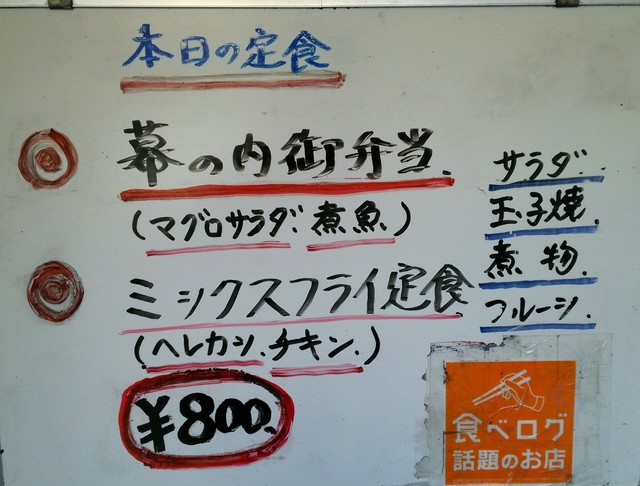 本日の定食
幕の内御弁当.
(マグロサラダ.煮魚.)
ミックスフライ定食
(ヘレカツ.チキン.)
¥800.
サラダ.
玉子焼.
煮物.
フルーツ.
食べログ
話題のお店